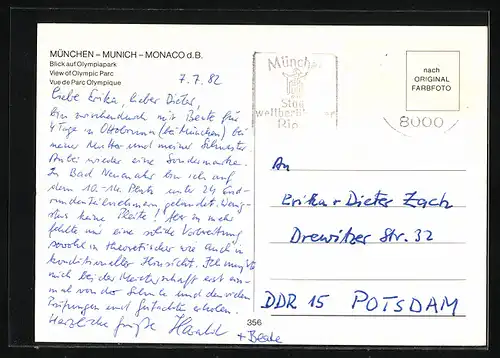 MÜNCHEN – MUNICH – MONACO d.B.
Blick auf Olympiapark
View of Olympic Parc
Vue de Parc Olympique
7.7.82
Liebe Erika, lieber Dieter,
bin zwischendurch mit Beate für
4 Tage in Ottobrunn (bei München) bei
meiner Mutter und meiner Schwester.
Anbei wieder eine Sondermarke.
In Bad Neuenahr bin ich auf
dem 10.-14. Platz unter 24 End-
rundenteilnehmern gelandet. Wenig-
stens keine Pleite! Aber in mehr
fehlte mir eine solide Vorbereitung
sowohl in theoretischer wie auch in
konditioneller Hinsicht. Ich mußte
mich bei der Meisterschaft erst ein-
mal von der Schule und den vielen
Prüfungen und Gutachten erholen.
Herzliche Grüße Harald
+ Beate
356
München
Stadt
8000
nach
ORIGINAL
FARBFOTO
An
Erika + Dieter Zach
Drewitzer Str. 32
DDR 15 POTSDAM